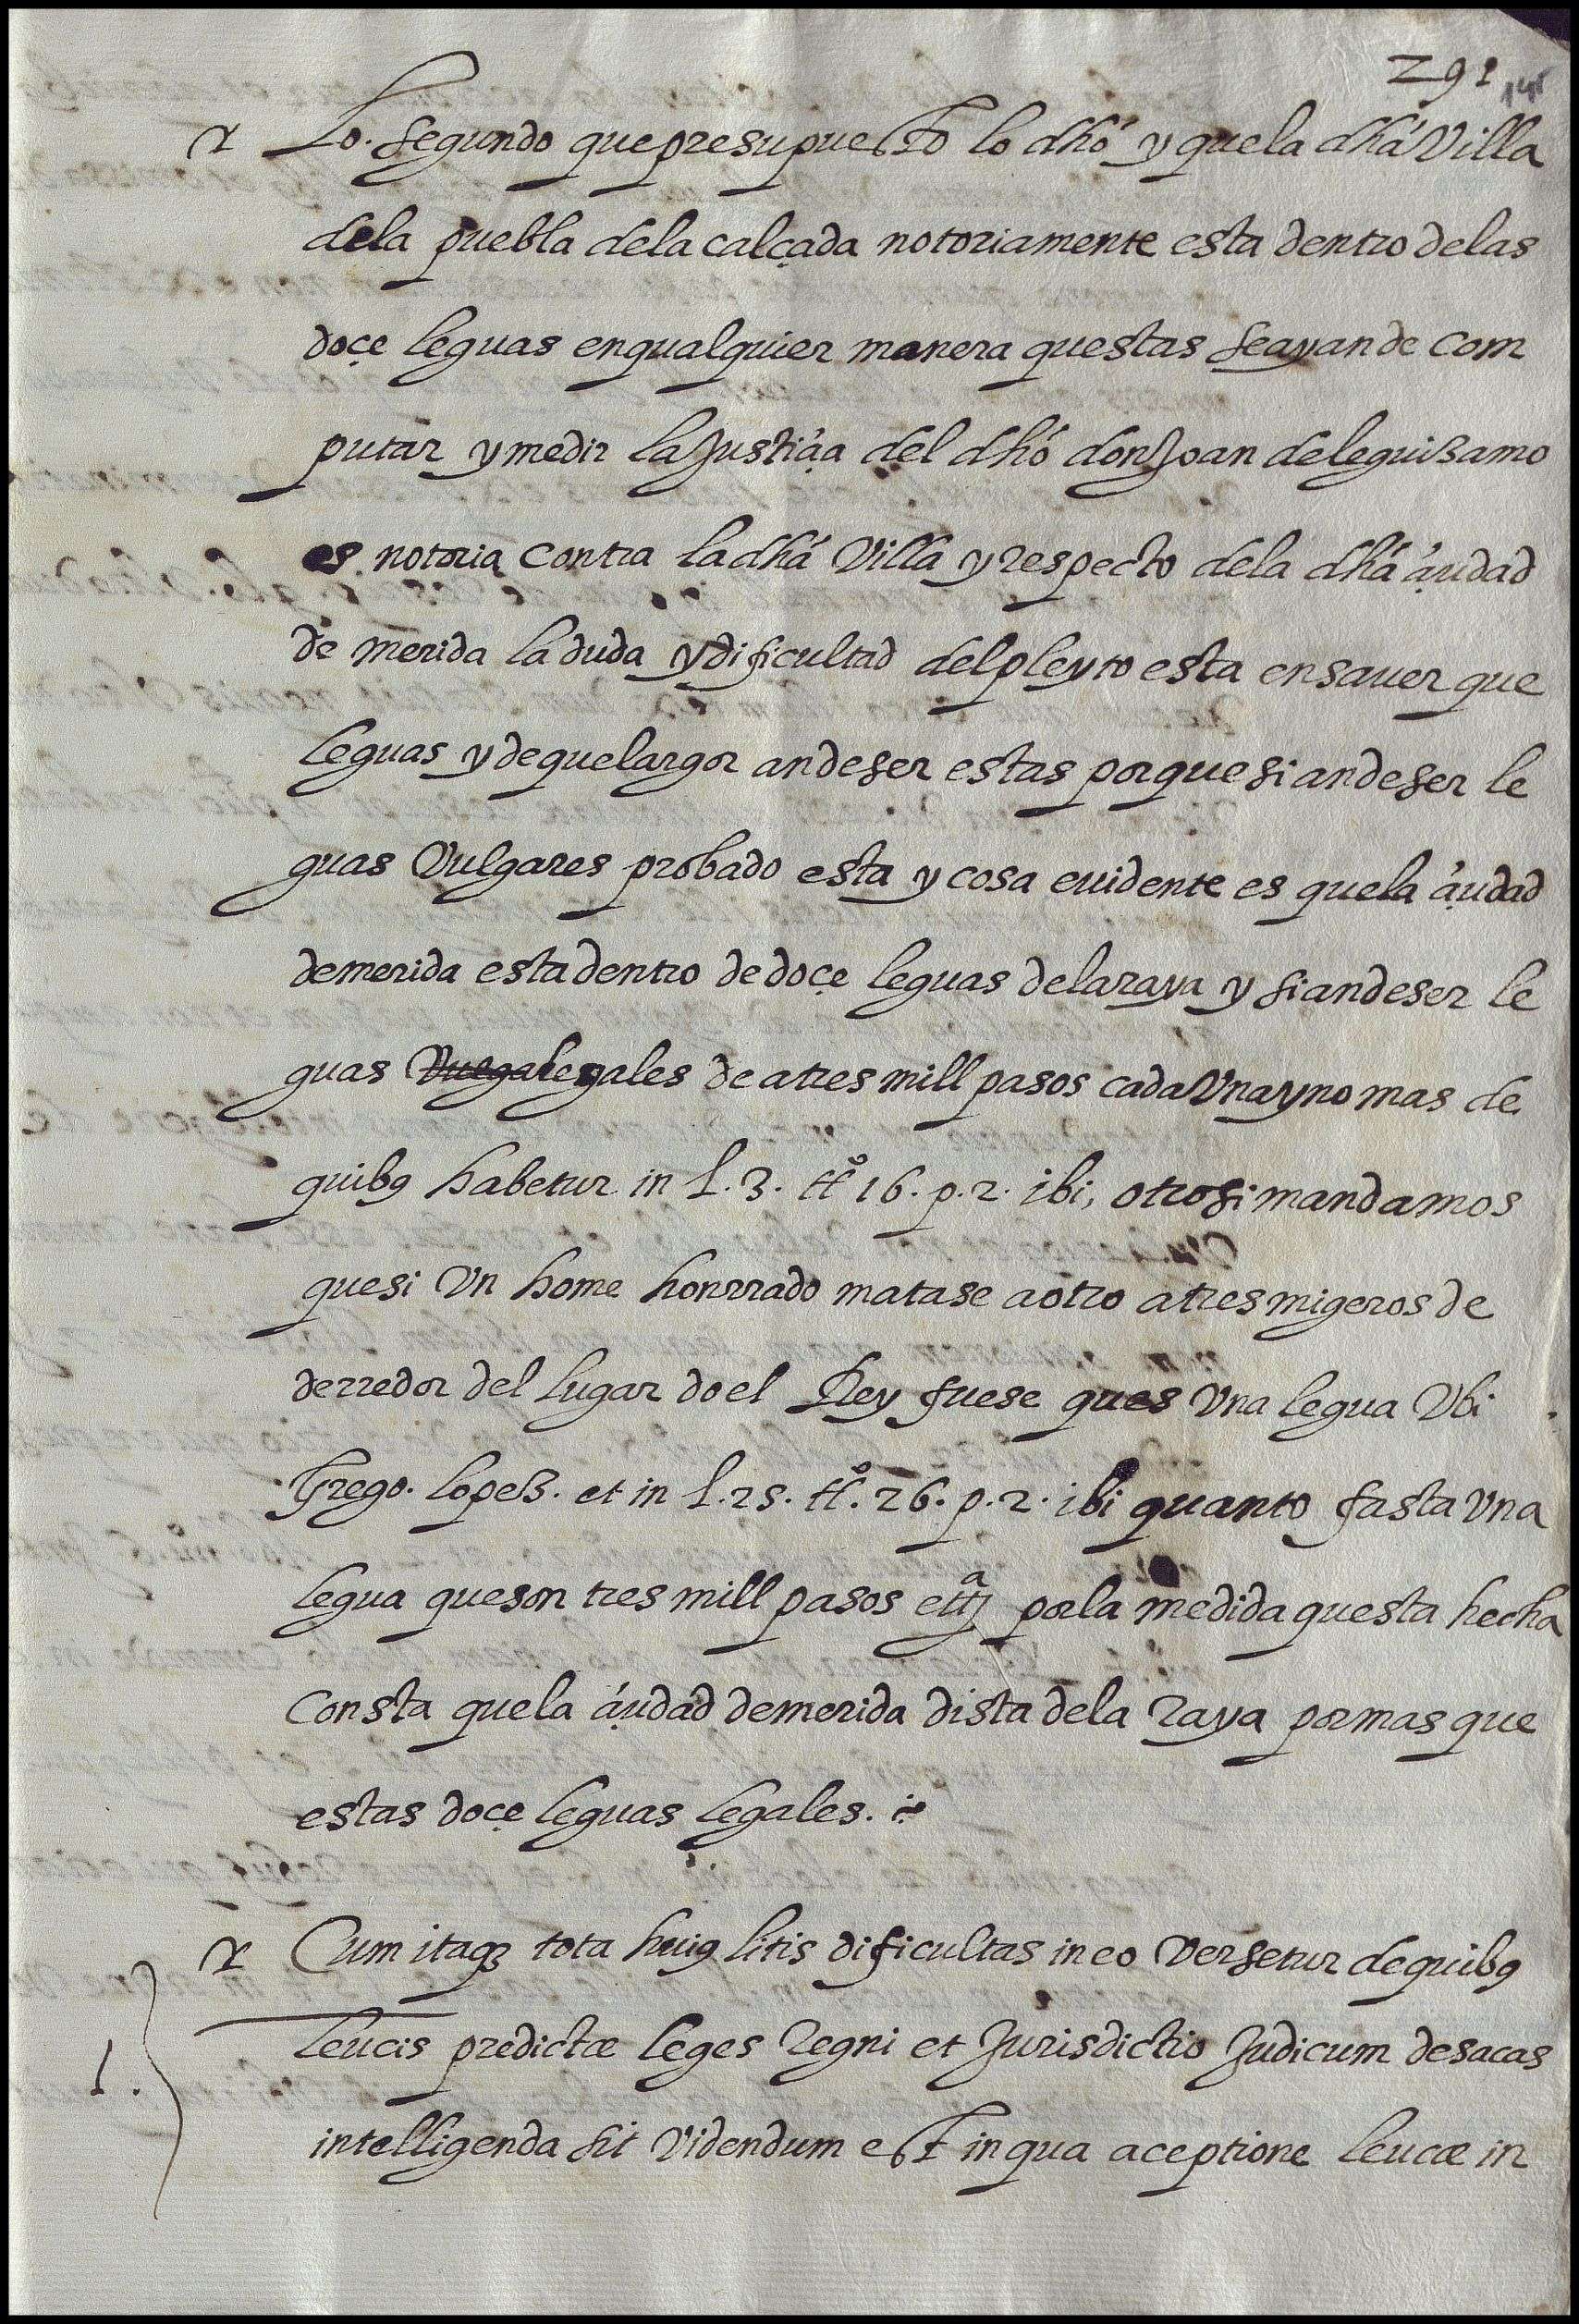 291
Lo. segundo que presupuesto lo dhó y que la dhá Villa
de la puebla de la calçada notoriamente esta dentro de las
doçe leguas en qualquier manera questas se ayan de com
putar y medir la Justiçia del dhó don Joan de leguisamo
es notoria contra la dhá Villa y respecto de la dhá çiudad
de merida la duda y dificultad del pleyto esta en sauer que
leguas y de que largor an de ser estas porque si an de ser le
guas Vulgares probado esta y cosa euidente es que la çiudad
de merida esta dentro de doçe leguas de la raya y si an de ser le
guas Vulga legales de a tres mill pasos cada Vna y no mas de
quibꝯ habetur in l. 3. ttº 16. p. 2. ibi, otrosi mandamos
que si Vn home honrrado matase a otro a tres migeros de
derredor del lugar do el Rey fuese ques Vna legua Vbi
Grego. lopes. et in l. 25. ttº. 26. p. 2. ibi quanto fasta Vna
legua que son tres mill pasos ettª por la medida questa hecha
Consta que la çiudad de merida dista de la raya por mas que
estas doçe leguas legales.
Cum itaqꝫ tota huiꝯ litis dificultas in eo Versetur de quibꝯ
1. leucis predictæ leges regni et Jurisdictio Judicum de sacas
intelligenda sit Videndum est in qua aceptione leucæ in